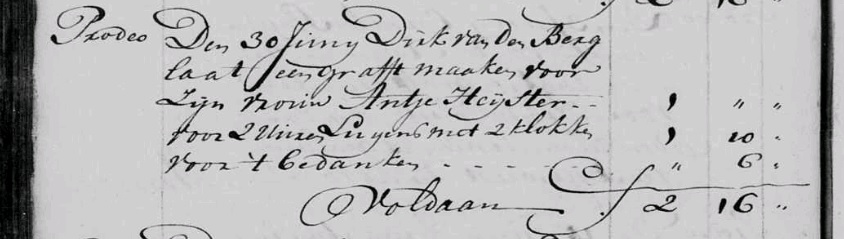 Prodeo Den 30 Juny Dirk van den Berg
laat een grafft maaken voor
Zijn vrouw Antje Heijster - - 1 " "
voor 2 Uuren Luyens met 2 klokke 1 10 "
voor 't bedanken - - - - " 6 "
Voldaan ƒ 2 16 "